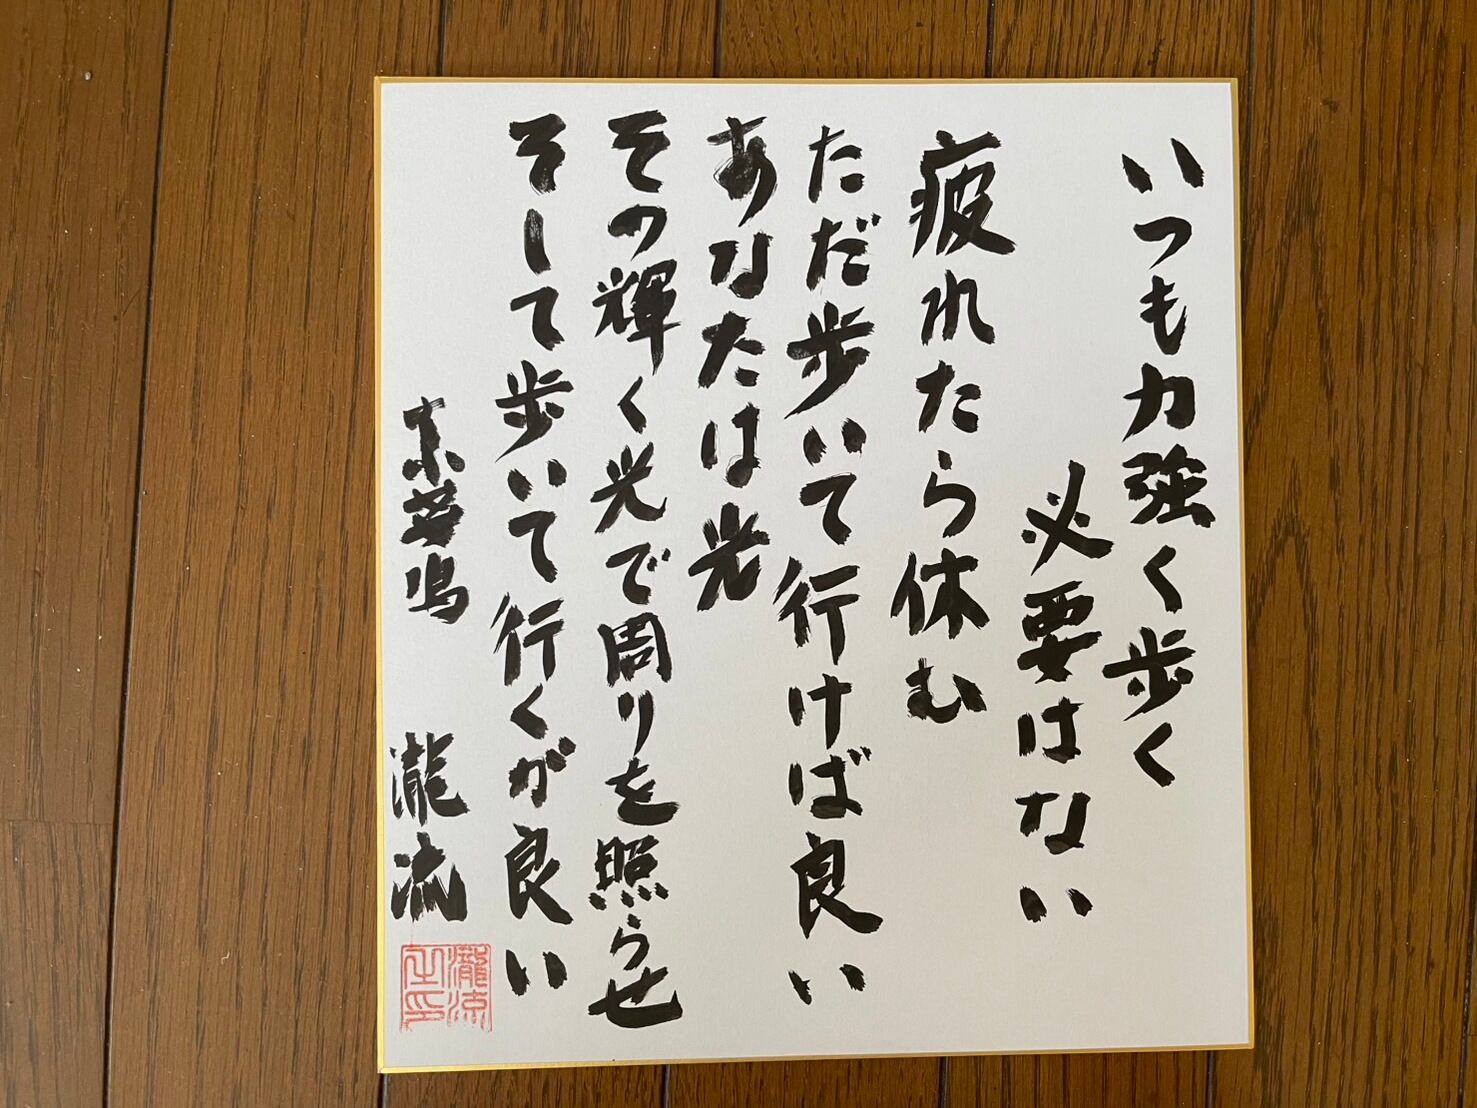 いつも力強く歩く
必要はない
疲れたら休む
ただ歩いて行けば良い
あなたは光
その輝く光で周りを照らせ
そして歩いて行くが良い
瀧流